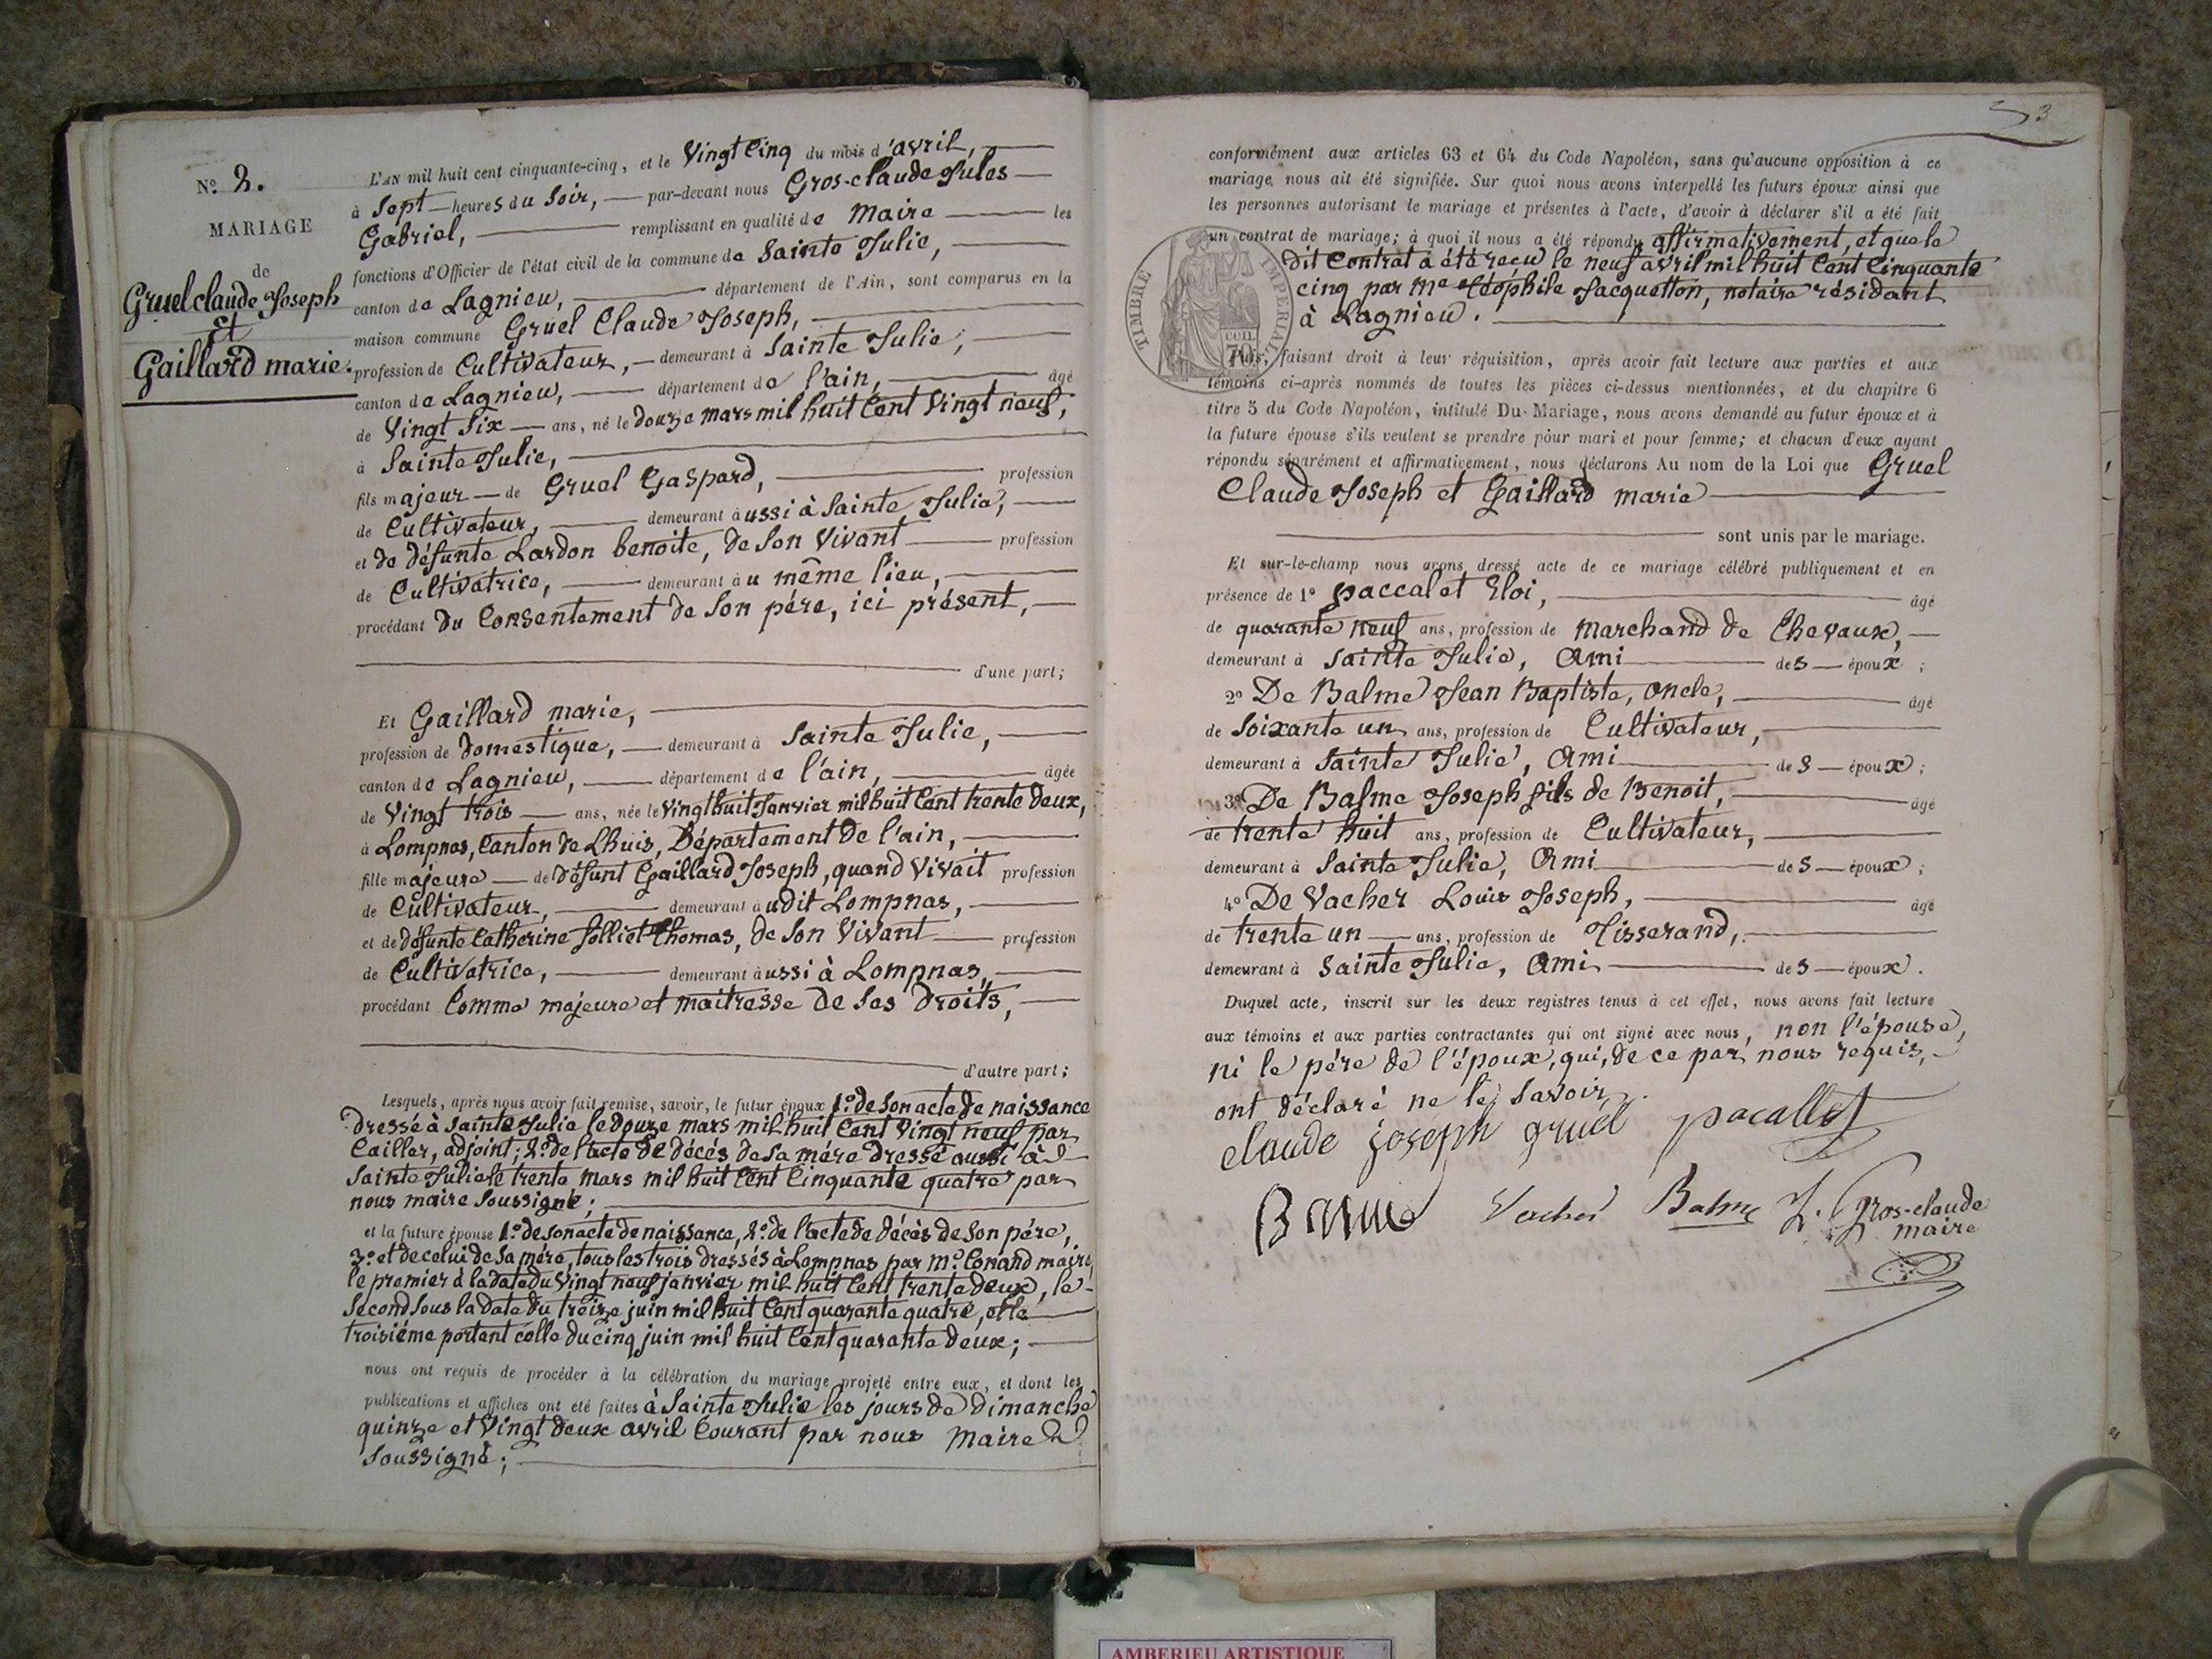 N.o 2.
MARIAGE
de
Gruel claude Joseph
Et
Gaillard marie.
L'AN mil huit cent cinquante-cinq, et le Vingt Cinq du mois d'avril,
à Sept heures du Soir, par-devant nous Gros-claude Jules
Gabriel, remplissant en qualité de Maire les
fonctions d'Officier de l'état civil de la commune de Sainte Julie,
canton de Lagnieu, département de l'Ain, sont comparus en la
maison commune Gruel Claude Joseph,
profession de Cultivateur, demeurant à Sainte Julie,
canton de Lagnieu, département de l'ain, âgé
de Vingt Six ans, né le douze mars mil huit Cent Vingt neuf,
à Sainte Julie,
fils majeur de Gruel Gaspard, profession
de Cultivateur, demeurant aussi à Sainte Julie,
et de défunte Lardon benoite, de Son Vivant profession
de Cultivatrice, demeurant au même lieu,
procédant du Consentement de Son père, ici présent,
d'une part;
Et Gaillard marie,
profession de domestique, demeurant à Sainte Julie,
canton de Lagnieu, département de l'ain, âgée
de Vingt trois ans, née le Vingt huit Janvier mil huit Cent trente deux,
à Lompnas, Canton de Lhuis, Département de l'ain,
fille majeure de défunt Gaillard Joseph, quand Vivait profession
de Cultivateur, demeurant audit Lompnas,
et de défunte Catherine Jolliet Thomas, de Son Vivant profession
de Cultivatrice, demeurant aussi à Lompnas,
procédant Comme majeure et maitresse de Ses droits,
d'autre part;
Lesquels, après nous avoir fait remise, savoir, le futur époux 1.o de Son acte de naissance
dressé à Sainte Julie le douze mars mil huit Cent Vingt neuf par
Cailler, adjoint; 2.o de l'acte de décès de Sa mére dressé aussi à
Sainte Julie le trente mars mil huit Cent Cinquante quatre par
nous maire Soussigné;
et la future épouse 1.o de son acte de naissance, 2.o de l'acte de décès de Son pére,
3.o et de celui de Sa mére, tous les trois dressés à Lompnas par M.e Conand maire,
le premier à la date du Vingt neuf janvier mil huit Cent trente deux, le
Second Sous la date du treize juin mil huit Cent quarante quatre, et le
troisiéme portant celle du cinq juin mil huit Cent quarante deux;
nous ont requis de procéder à la célébration du mariage projeté entre eux, et dont les
publications et affiches ont été faites à Sainte Julie les jours de dimanche
quinze et Vingt deux avril Courant par nous Maire
Soussigné;
3
conformément aux articles 63 et 64 du Code Napoléon, sans qu'aucune opposition à ce
mariage nous ait été signifiée. Sur quoi nous avons interpellé les futurs époux ainsi que
les personnes autorisant le mariage et présentes à l'acte, d'avoir à déclarer s'il a été fait
un contrat de mariage; à quoi il nous a été répondu affirmativement, et que le
dit Contrat a été reçu le neuf avril mil huit Cent Cinquante
cinq par Me Téophile Jacquetton, notaire résidant
à Lagnieu.
TIMBRE IMPERIAL
cen.
70
Puis, faisant droit à leur réquisition, après avoir fait lecture aux parties et aux
témoins ci-après nommés de toutes les pièces ci-dessus mentionnées, et du chapitre 6
titre 5 du Code Napoléon, intitulé Du Mariage, nous avons demandé au futur époux et à
la future épouse s'ils veulent se prendre pour mari et pour femme; et chacun d'eux ayant
répondu séparément et affirmativement, nous déclarons Au nom de la Loi que Gruel
Claude Joseph et Gaillard marie
sont unis par le mariage.
Et sur-le-champ nous avons dressé acte de ce mariage célébré publiquement et en
présence de 1o paccalet Eloi, âgé
de quarante neuf ans, profession de Marchand de Chevaux,
demeurant à Sainte Julie, Ami des époux;
2o De Balme Jean Baptiste, oncle, âgé
de Soixante un ans, profession de Cultivateur,
demeurant à Sainte Julie, Ami des époux;
3o De Balme Joseph fils de Benoit, âgé
de trente huit ans, profession de Cultivateur,
demeurant à Sainte Julie, Ami des époux;
4o De Vacher Louis Joseph, âgé
de trente un ans, profession de Tisserand,
demeurant à Sainte Julie, Ami des époux.
Duquel acte, inscrit sur les deux registres tenus à cet effet, nous avons fait lecture
aux témoins et aux parties contractantes qui ont signé avec nous, non l'épouse,
ni le pére de l'époux, qui, de ce par nous requis,
ont déclaré ne le Savoir.
claude joseph gruel pacallet
Balme Vacher Balme J. Gros-claude
maire
AMBERIEU ARTISTIQUE